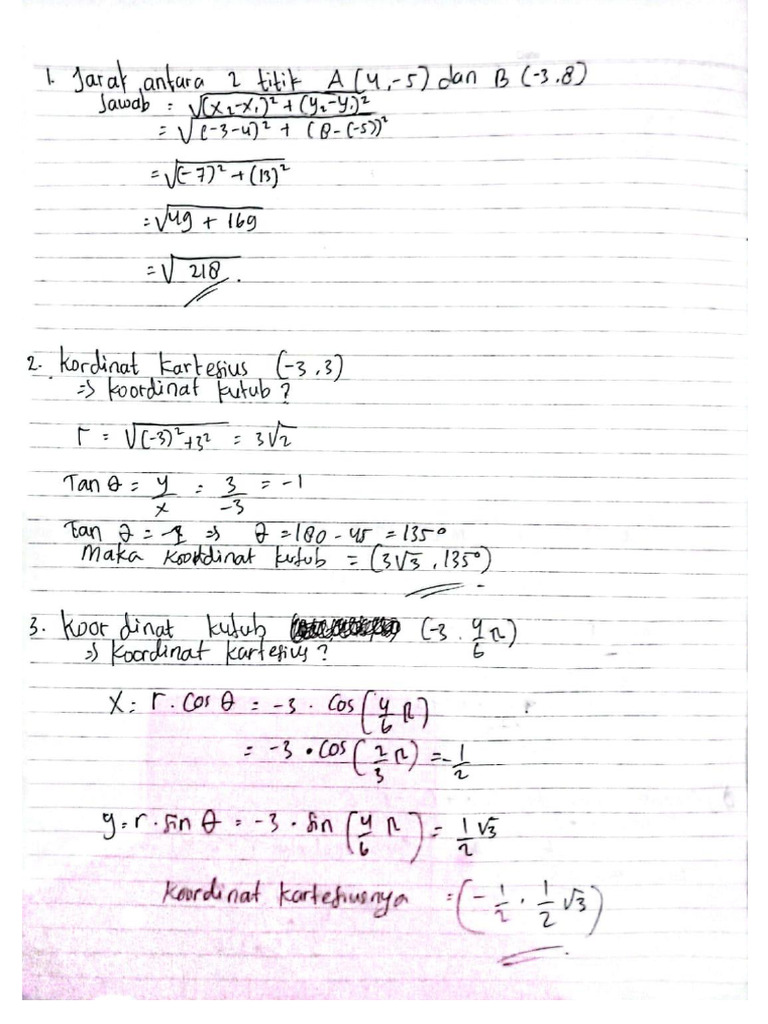 1. Jarak antara 2 titik A (4,-5) dan B (-3,8)
Jawab : √(x₂-x₁)² + (y₂-y₁)²
= √(-3-4)² + (8-(-5))²
= √(-7)² + (13)²
= √49 + 169
= √218.
2. Kordinat kartesius (-3,3)
=> koordinat kutub?
r = √(-3)²+3² = 3√2
Tan θ = y/x = 3/-3 = -1
tan θ = -1 => θ = 180 - 45 = 135°
Maka koordinat kutub = (3√3, 135°)
3. Koordinat kutub (-3, 4/6 π)
=> Koordinat kartesius?
X = r . cos θ = -3 . cos (4/6 π)
= -3 . cos (2/3 π) = -1/2
y = r . sin θ = -3 . sin (4/6 π) = 1/2 √3
Koordinat kartesiusnya = (-1/2, 1/2 √3)